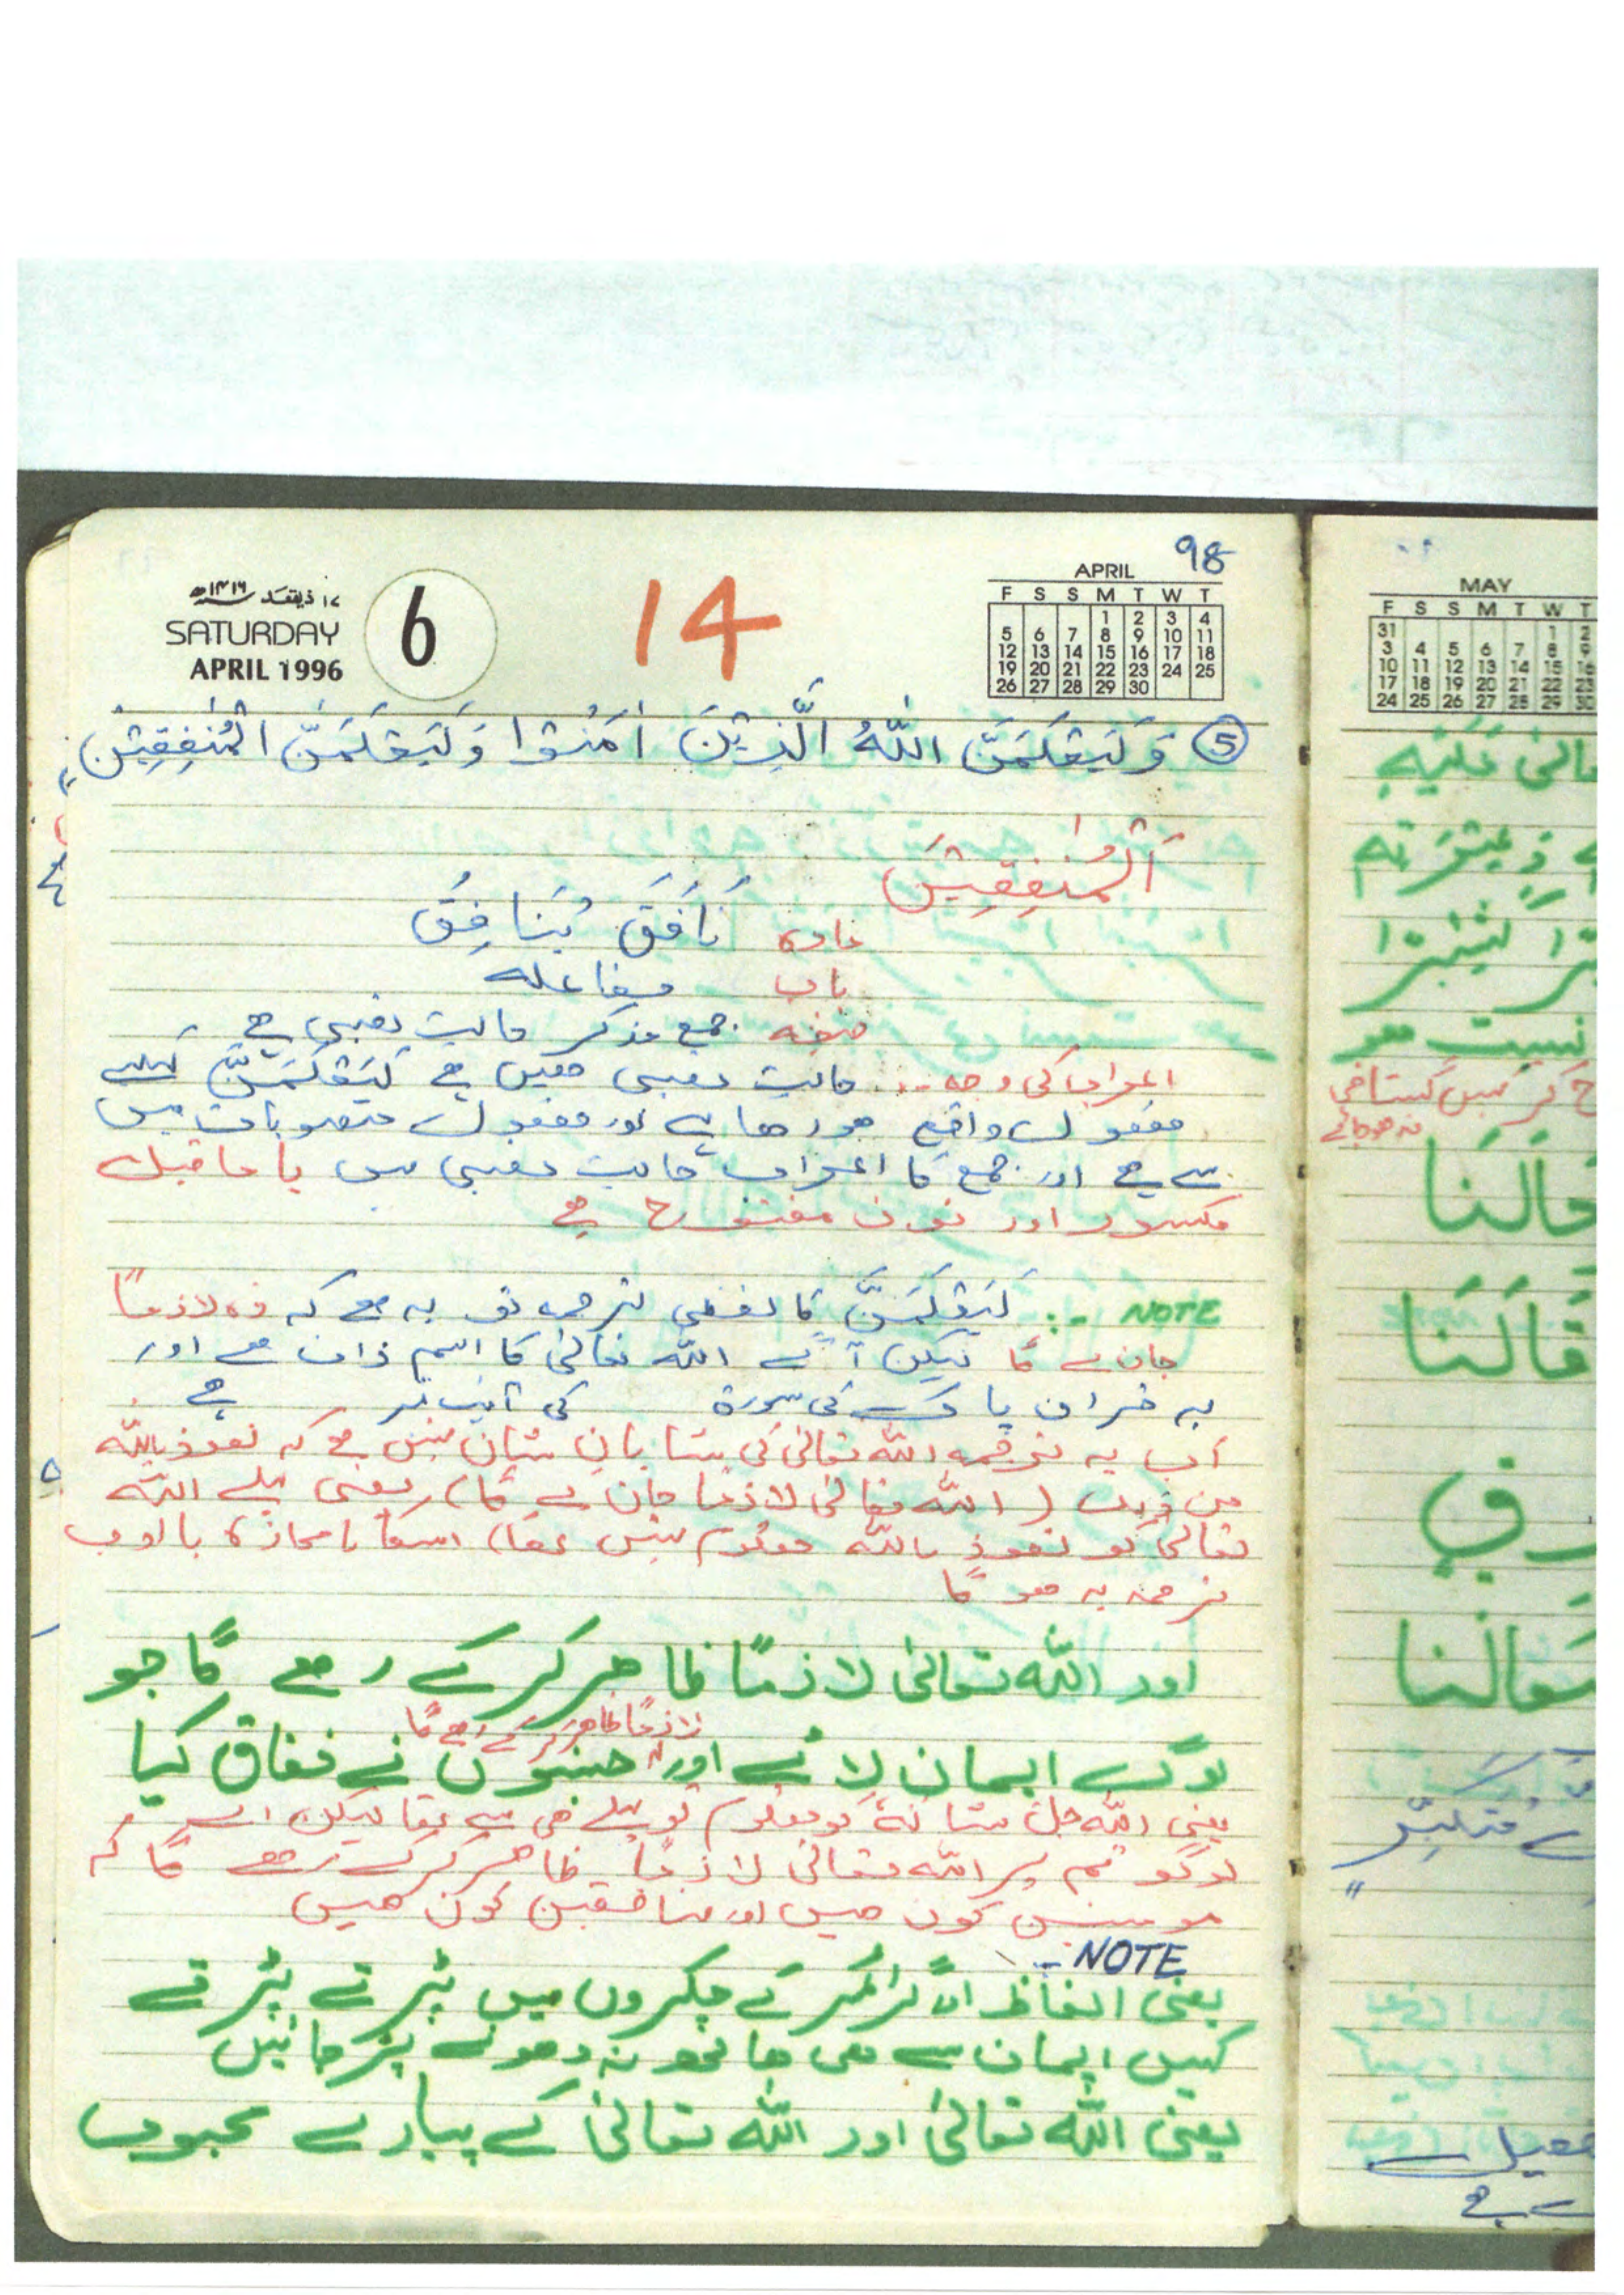 98
۱۷ ذیقعد ۱۴۱۶ھ
SATURDAY
APRIL 1996
6
14
APRIL
F S S M T W T
1 2 3 4
5 6 7 8 9 10 11
12 13 14 15 16 17 18
19 20 21 22 23 24 25
26 27 28 29 30
⑤ وَلَيَعْلَمَنَّ اللّٰهُ الَّذِيْنَ اٰمَنُوْا وَلَيَعْلَمَنَّ الْمُنٰفِقِيْنَ
اَلْمُنٰفِقِيْنَ
مادہ نَافَقَ يُنَافِقُ
باب مفاعلہ
صیغہ جمع مذکر حالت نصبی ہے
اعراب کی وجہ :۔ حالت نصبی میں ہے لَيَعْلَمَنَّ کیلئے
مفعول واقع ہو رہا ہے اور مفعول منصوبات میں
سے ہے اور جمع کا اعراب حالت نصبی میں یا ما قبل
مکسور اور نون مفتوح ہے
NOTE :۔ لَيَعْلَمَنَّ کا لفظی ترجمہ تو یہ ہے کہ وہ لازماً
جان لے گا لیکن آگے اللّٰہ تعالیٰ کا اسم ذات ہے اور
یہ قران پاک کی سورۃ کی آیت نمبر ہے
اب یہ ترجمہ اللّٰہ تعالیٰ کی شایانِ شان نہیں ہے کہ نعوذ باللّٰہ
من ذالک (اللّٰہ تعالیٰ لازماً جان لے گا) یعنی پہلے اللّٰہ
تعالیٰ کو نعوذ باللّٰہ معلوم نہیں تھا) اسکا بامحاورہ باادب
ترجمہ یہ ہو گا
اور اللّٰہ تعالیٰ لازماً ظاہر کر کے رہے گا جو
لازماً ظاہر کر کے رہے گا
لوگ ایمان لائے اور جنہوں نے نفاق کیا
یعنی اللّٰہ جل شانہٗ کو معلوم تو پہلے ہی سے تھا لیکن اے
لوگو تم پر اللّٰہ تعالیٰ لازماً ظاہر کر کے رہے گا کہ
مومنین کون ہیں اور منافقین کون ہیں
NOTE :-
یعنی الفاظ اور گرائمر کے چکروں میں پڑتے پڑتے
کہیں ایمان سے ہی ہاتھ نہ دھونے پڑ جائیں
یعنی اللّٰہ تعالیٰ اور اللّٰہ تعالیٰ کے پیارے محبوب
MAY
F S S M T W T
31 1 2
3 4 5 6 7 8 9
10 11 12 13 14 15 16
17 18 19 20 21 22 23
24 25 26 27 28 29 30